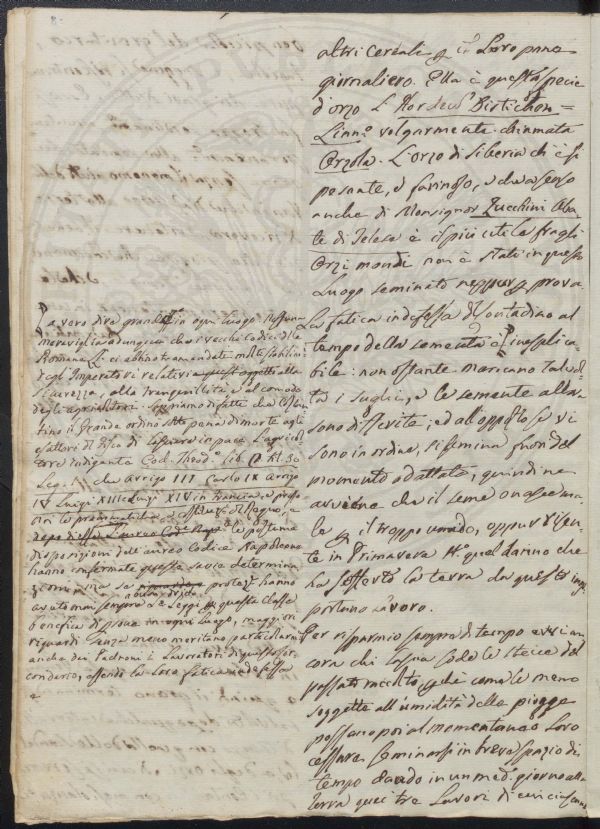 8.
altri cereali p il Loro pane
giornaliero. Ella è questa specie
d'orzo L'Hordeum Distichon =
Linn.º volgarmente chiamata
Orzola. L'orzo di Siberia ch'è sì
pesante, e farinoso, e che a senso
anche di Monsignor Zucchini Aba-
te di Telese è il più utile fragli
Orzi mondi non è stato in questo
Luogo seminato neppur p prova.
La fatica indefessa del Contadino al
tempo della sementa è inesplica-
bile: non ostante mancano talvol-
ta i Sughi, e le semente allora
sono differite; ed all'opposto se vi
sono in ordine, si semina fuori del
momento adattato, quindi ne
avviene che il seme o nasce ma-
le p il troppo umido, oppure risen-
te in Primavera quel danno che
ha sofferto la terra da questo inop-
portuno Lavoro.
Per risparmio sempre di tempo evvi an-
cora chi lascia sode le stecce del
passato raccolto, che come le meno
soggette all'umidità delle piogge
possano poi al momentaneo Loro
cessare seminarsi in breve spazio di
tempo dando in un med.º giorno alla
terra que' tre Lavori di cui ciascuno
A vero dire grande in ogni luogo. Nessuna
meraviglia adunque che i vecchi Codici delle
Romane ci abbino tramandate molte
degl'Imperatori relative quest'oggetto alla
sicurezza, alla tranquillità e al comodo
degli agricoltori. sappiamo di fatti che Costan
tino il Grande ordinò sotto pena di morte agli
esattori del Fisco di lasciare in pace l'agricol
tore indigente Cod. Theod.º lib.
Leg. che Arrigo III Carlo IX Arrigo
IV Luigi XIII e Luigi XIV in Francia
le prammatiche
dopo le
disposizioni dell'aureo Codice Napoleone
hanno confermate questa savia determina
zione, ma se protez. hanno
avuto mai sempre le Leggi questa classe
benefica di persone in ogni Luogo, maggiori
riguardi senza meno meritano particolarm.
anche dai Padroni i Lavoratori di questo cir-
condario, essendo la loro fatica indefessa